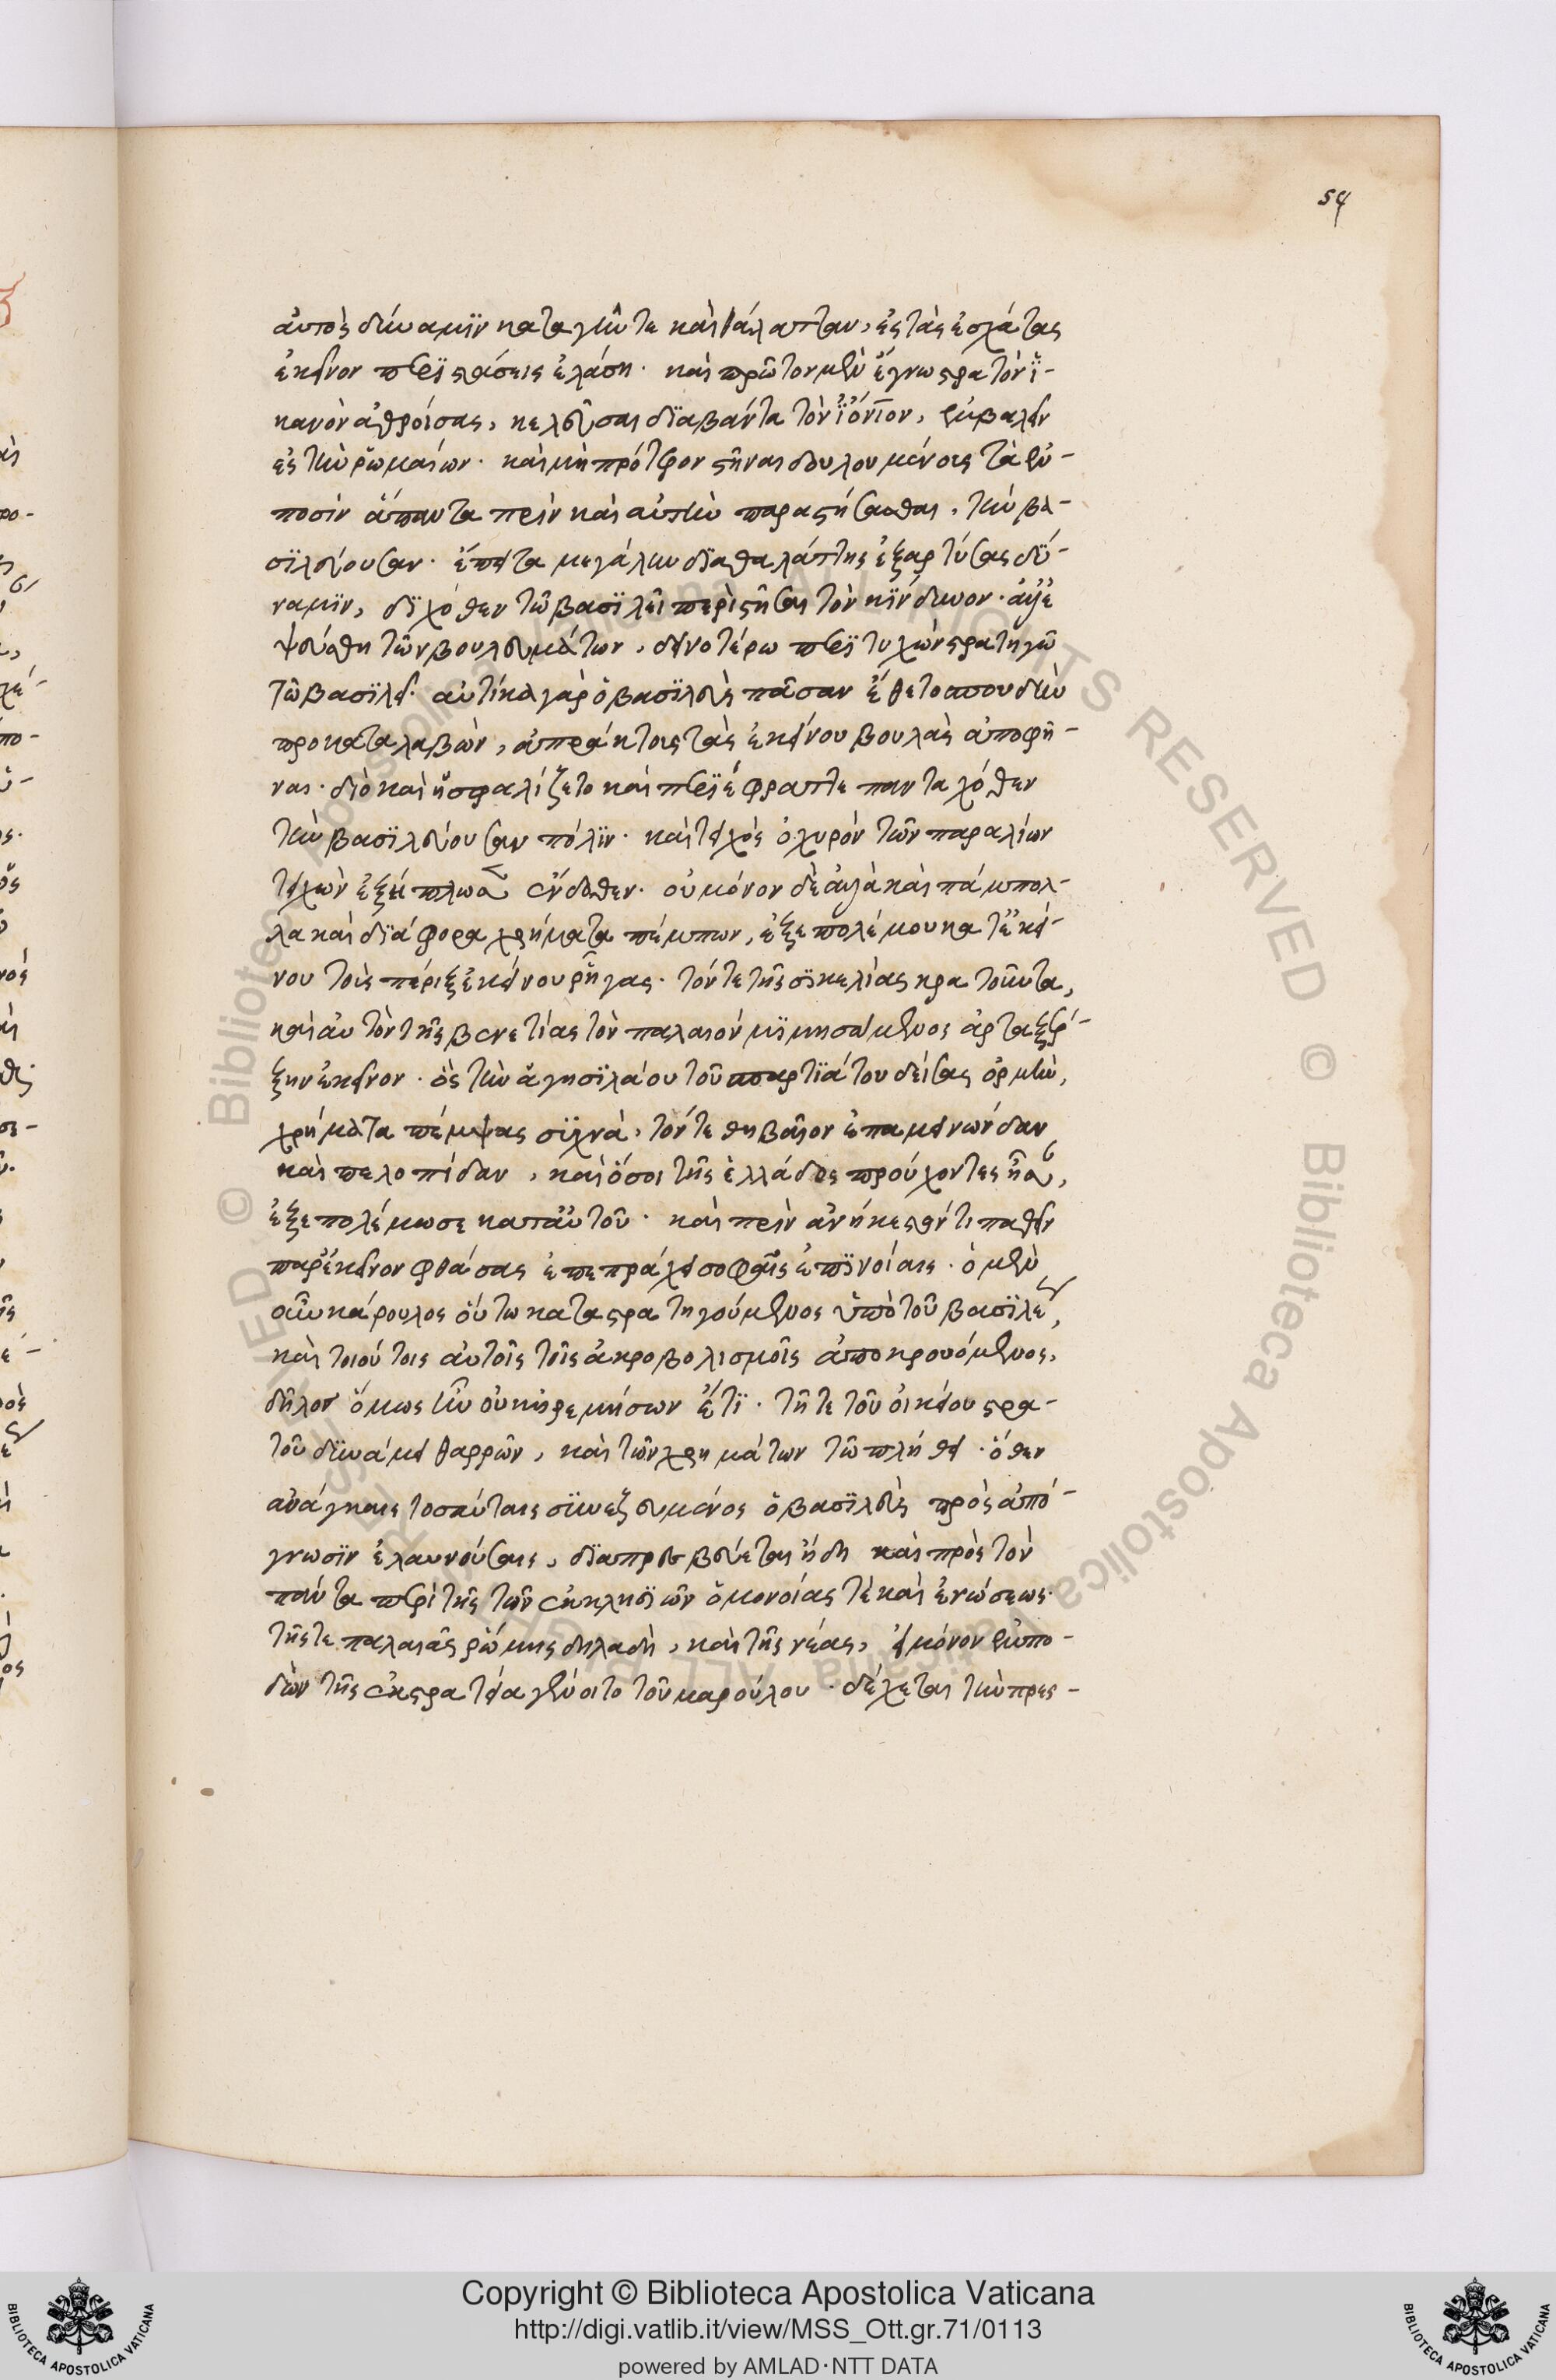 54
αὐτὸς δύναμϊν κατα γῆν τε καὶ θάλατταν, ἐς τὰς ἐσχάτας
ἐκεῖνον περϊστάσεις ἐλάσῃ· καὶ πρῶτον μὲν ἔγνω στρατὸν ἱ-
κανὸν ἀθροίσας, κελεῦσαι δϊαβάντα τὸν ἰόνιον, ἐμβαλεῖν
ἐς τὴν ῥωμαίων· καὶ μὴ πρότερον στῆναι δουλουμένοις τὰ ἐν
ποσὶν ἅπαντα πρὶν καὶ αὐτὴν παραστήσασθαι, τὴν βα-
σϊλεύουσαν· ἔπειτα μεγάλην δϊα θαλάττης ἐξαρτύσας δύ-
ναμϊν, διχόθεν τῶ βασϊλεῖ περιστῆσαι τὸν κΐνδυνον· ἀλλ' ἐ
ψεύσθη τῶν βουλευμάτων, δεινοτέρω περϊτυχὼν στρατηγῶ
τῶ βασϊλεῖ· αὐτίκα γὰρ ὁ βασϊλεὺς πᾶσαν ἔθετο σπουδὴν
προκαταλαβὼν, ἀπράκτοις τὰς ἐκείνου βουλὰς ἀποφῆ-
ναι· διὸ καὶ ἠσφαλίζετο καὶ περϊέφραττε πανταχόθεν
τὴν βασϊλεύουσαν πόλϊν· καὶ τεῖχος ὀχυρὸν τῶν παραλίων
τειχῶν ἐξήπλωσεν ἔνδοθεν· οὐ μόνον δὲ ἀλλὰ καὶ πάμπολ-
λα καὶ δϊάφορα χρήματα πέμπων, ἐξεπολέμου κατ' ἐκεί-
νου τοὺς πέριξ ἐκείνου ῥῆγας· τόν τε τῆς σϊκελίας κρατοῦντα,
καὶ αὐτὸν τῆς βενετίας τὸν παλαιὸν μϊμησάμενος ἀρταξέρ-
ξην ἐκεῖνον· ὃς τὴν ἀγησϊλάου τοῦ σπαρτϊάτου δείσας ὁρμὴν,
χρήματα πέμψας σϊχνὰ, τόν τε θηβαῖον ἐπαμεινώνδαν
καὶ πελοπίδαν, καὶ ὅσοι τῆς ἑλλάδος προύχοντες ἦσαν,
ἐξεπολέμωσε κατ' αὐτοῦ· καὶ πρὶν ἀνήκεστόν τι παθεῖν
παρ' ἐκεῖνον φθάσας ἐπεπράχει σοφαῖς ἐπϊνοίαις· ὁ μὲν
οὖν κάρουλος οὕτω καταστρατηγούμενος ὑπὸ τοῦ βασϊλέως,
καὶ τοιούτοις αὐτοῖς τοῖς ἀκροβολισμοῖς ἀποκρουόμενος,
δῆλος ὅμως ἦν οὐκ ἠρεμήσων ἔτϊ· τῇ τε τοῦ οἰκείου στρα-
τοῦ δϋνάμει θαρρῶν, καὶ τῶν χρημάτων τῶ πλήθει· ὅθεν
ἀνάγκαις τοσαύταις σϋνεζευγμένος ὁ βασϊλεὺς πρὸς ἀπό-
γνωσϊν ἐλαυνούσαις, δϊαπρεσβεύεται ἤδη καὶ πρὸς τὸν
πάπα περὶ τῆς τῶν ἐκκλησϊῶν ὁμονοίας τὲ καὶ ἑνώσεως·
τῆς τε παλαιᾶς ῥώμης δηλαδὴ, καὶ τῆς νέας, εἰ μόνον ἐμπο-
δὼν τῆς ἐκστρατείας γένοιτο τοῦ καρούλου· δέχεται τὴν πρεσ-
Copyright © Biblioteca Apostolica Vaticana
http://digi.vatlib.it/view/MSS_Ott.gr.71/0113
powered by AMLAD·NTT DATA